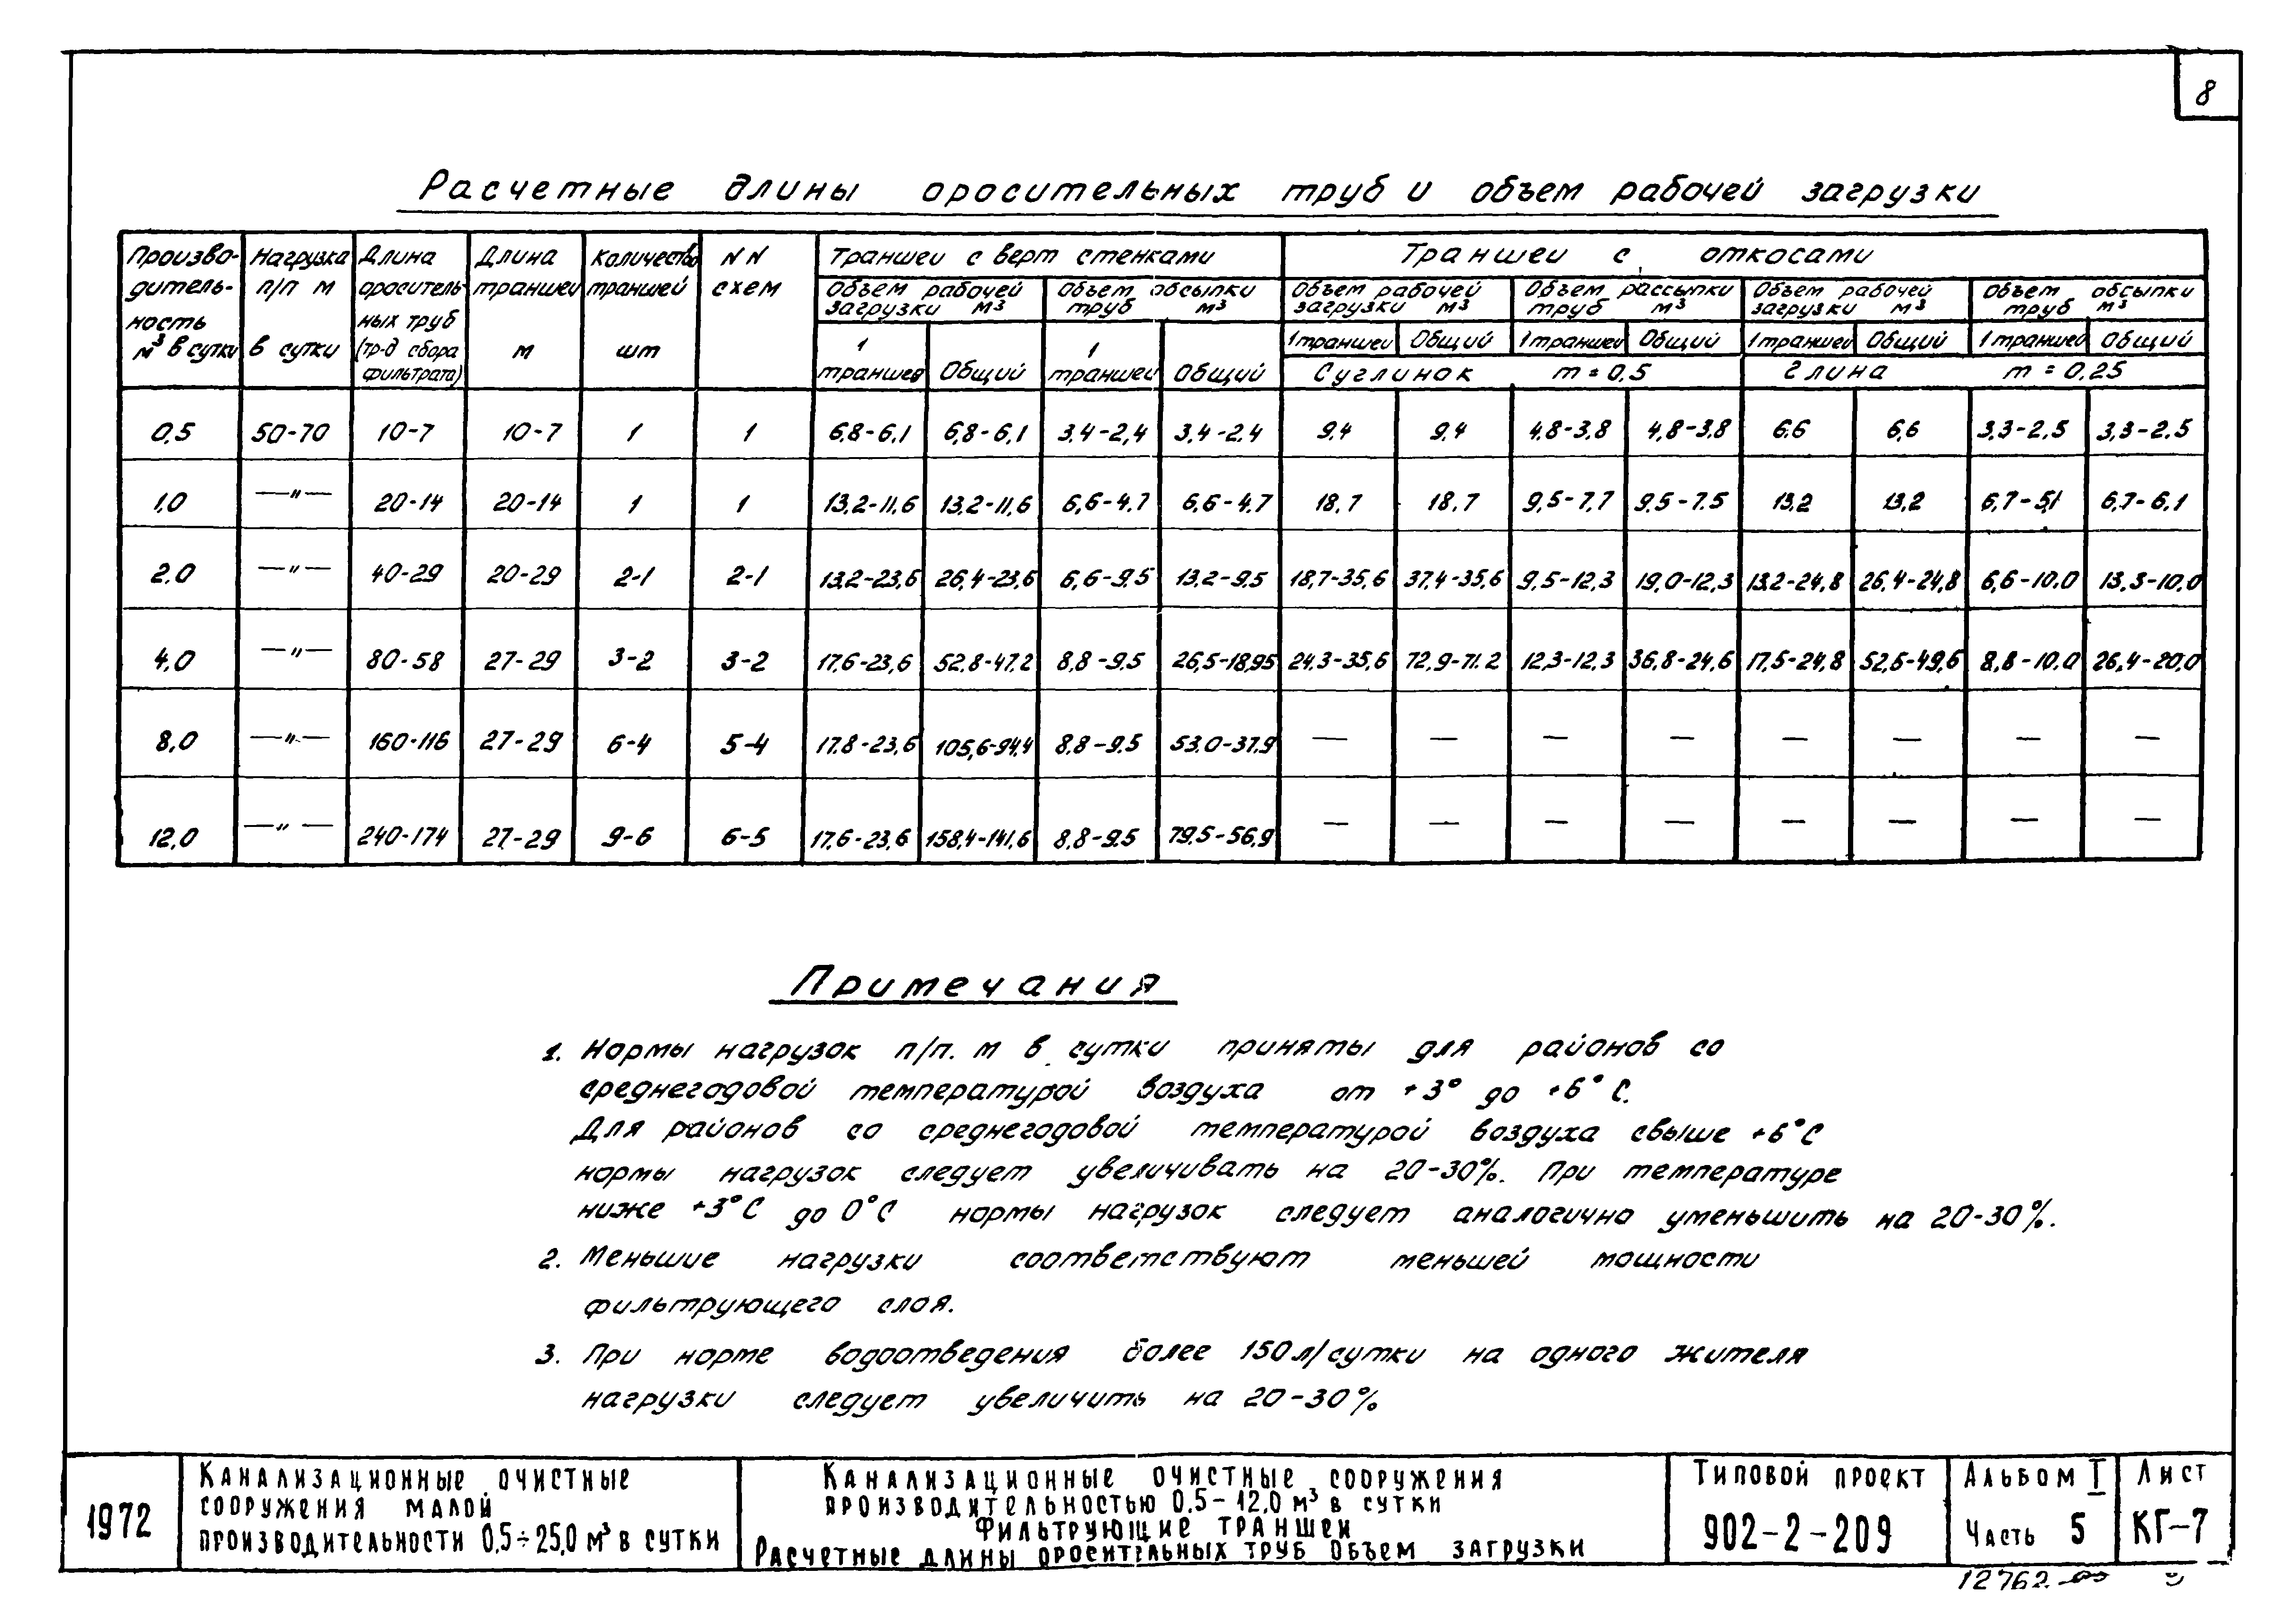 8
Расчетные длины оросительных труб и объем рабочей загрузки
Произво-
дитель-
ность
м³ в сутки
Нагрузка
п/п м
в сутки
Длина
ороситель-
ных труб
(тр-д сбора
фильтрата)
Длина
траншеи
м
Количество
траншей
шт
NN
схем
Траншеи с верт стенками
Траншеи с откосами
Объем рабочей
загрузки м³
Объем обсыпки
труб м³
Объем рабочей
загрузки м³
Объем рассыпки
труб м³
Объем рабочей
загрузки м³
Объем обсыпки
труб м³
1
траншея
Общий
1
траншеи
Общий
1 траншеи Общий 1 траншеи Общий 1 траншеи Общий 1 траншеи Общий
Суглинок m = 0,5 Глина m = 0,25
0,5 50-70 10-7 10-7 1 1 6,8-6,1 6,8-6,1 3,4-2,4 3,4-2,4 9,4 9,4 4,8-3,8 4,8-3,8 6,6 6,6 3,3-2,5 3,3-2,5
1,0 —"— 20-14 20-14 1 1 13,2-11,6 13,2-11,6 6,6-4,7 6,6-4,7 18,7 18,7 9,5-7,7 9,5-7,5 13,2 13,2 6,7-5,1 6,7-6,1
2,0 —"— 40-29 20-29 2-1 2-1 13,2-23,6 26,4-23,6 6,6-9,5 13,2-9,5 18,7-35,6 37,4-35,6 9,5-12,3 19,0-12,3 13,2-24,8 26,4-24,8 6,6-10,0 13,3-10,0
4,0 —"— 80-58 27-29 3-2 3-2 17,6-23,6 52,8-47,2 8,8-9,5 26,5-18,95 24,3-35,6 72,9-71,2 12,3-12,3 36,8-24,6 17,5-24,8 52,6-49,6 8,8-10,0 26,4-20,0
8,0 —"— 160-116 27-29 6-4 5-4 17,8-23,6 105,6-94,4 8,8-9,5 53,0-37,9 — — — — — — — —
12,0 —"— 240-174 27-29 9-6 6-5 17,6-23,6 158,4-141,6 8,8-9,5 79,5-56,9 — — — — — — — —
Примечания
1. Нормы нагрузок п/п. м в сутки приняты для районов со
среднегодовой температурой воздуха от +3° до +6° С.
Для районов со среднегодовой температурой воздуха свыше +6°С
нормы нагрузок следует увеличивать на 20-30%. При температуре
ниже +3°С до 0°С нормы нагрузок следует аналогично уменьшить на 20-30%.
2. Меньшие нагрузки соответствуют меньшей мощности
фильтрующего слоя.
3. При норме водоотведения более 150 л/сутки на одного жителя
нагрузки следует увеличить на 20-30%
1972
Канализационные очистные
сооружения малой
производительности 0,5÷25,0 м³ в сутки
Канализационные очистные сооружения
производительностью 0,5-12,0 м³ в сутки
Фильтрующие траншеи
Расчетные длины оросительных труб объем загрузки
Типовой проект
902-2-209
Альбом I
Часть 5
Лист
КГ-7
12762